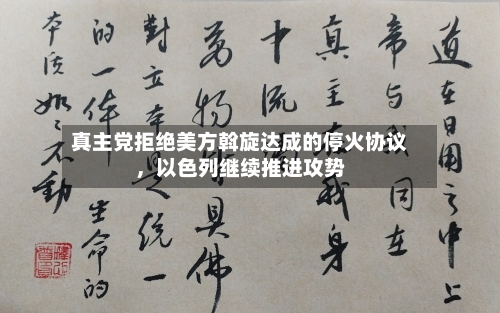 真主党拒绝美方斡旋达成的停火协议
，以色列继续推进攻势
道在日用之中上
帝与我同在
真主在我身
中流
万物具佛
對立本是统一
的一体生命的
本质如〻不動